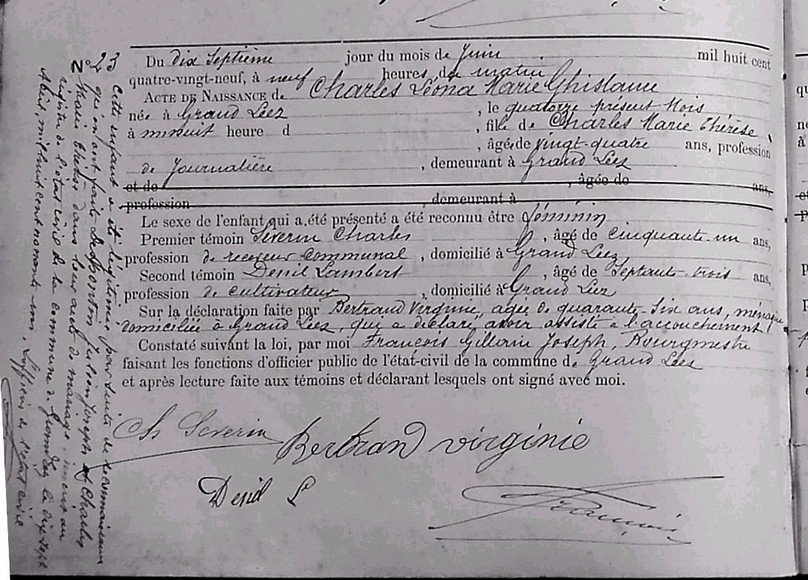 N° 23
Cette enfant a été légitimée par suite de reconnaissance
qu'en ont faite Joseph et Charles
Marie Thérèse dans leur acte de mariage inscrit au
registre de l'état civil de la commune de le dix sept
Avril, mil huit cent nonante un. L'officier de l'état civil
Du dix Septième jour du mois de Juin mil huit cent
quatre-vingt-neuf, à neuf heures du matin
ACTE DE NAISSANCE de Charles Léona Marie Ghislaine
née à Grand Leez , le quatorze présent Mois
à minuit heure d , fille de Charles Marie Thérèse,
, âgée de vingt-quatre ans, profession
de Journalière , demeurant à Grand Leez
et de , âgée de ans,
profession , demeurant à
Le sexe de l'enfant qui a été présenté a été reconnu être féminin
Premier témoin Séverin Charles , âgé de cinquante-un ans,
profession de receveur communal , domicilié à Grand Leez
Second témoin Denil Lambert , âgé de Septante-trois ans,
profession de cultivateur , domicilié à Grand Leez
Sur la déclaration faite par Bertrand Virginie, agée de quarante Six ans, ménagère
domiciliée à Grand Leez, qui a déclaré avoir assisté à l'accouchement
Constaté suivant la loi, par moi François Joseph, Bourgmestre
faisant les fonctions d'officier public de l'état-civil de la commune de Grand Leez
et après lecture faite aux témoins et déclarant lesquels ont signé avec moi.
Ch Severin Bertrand virginie
Denil L François